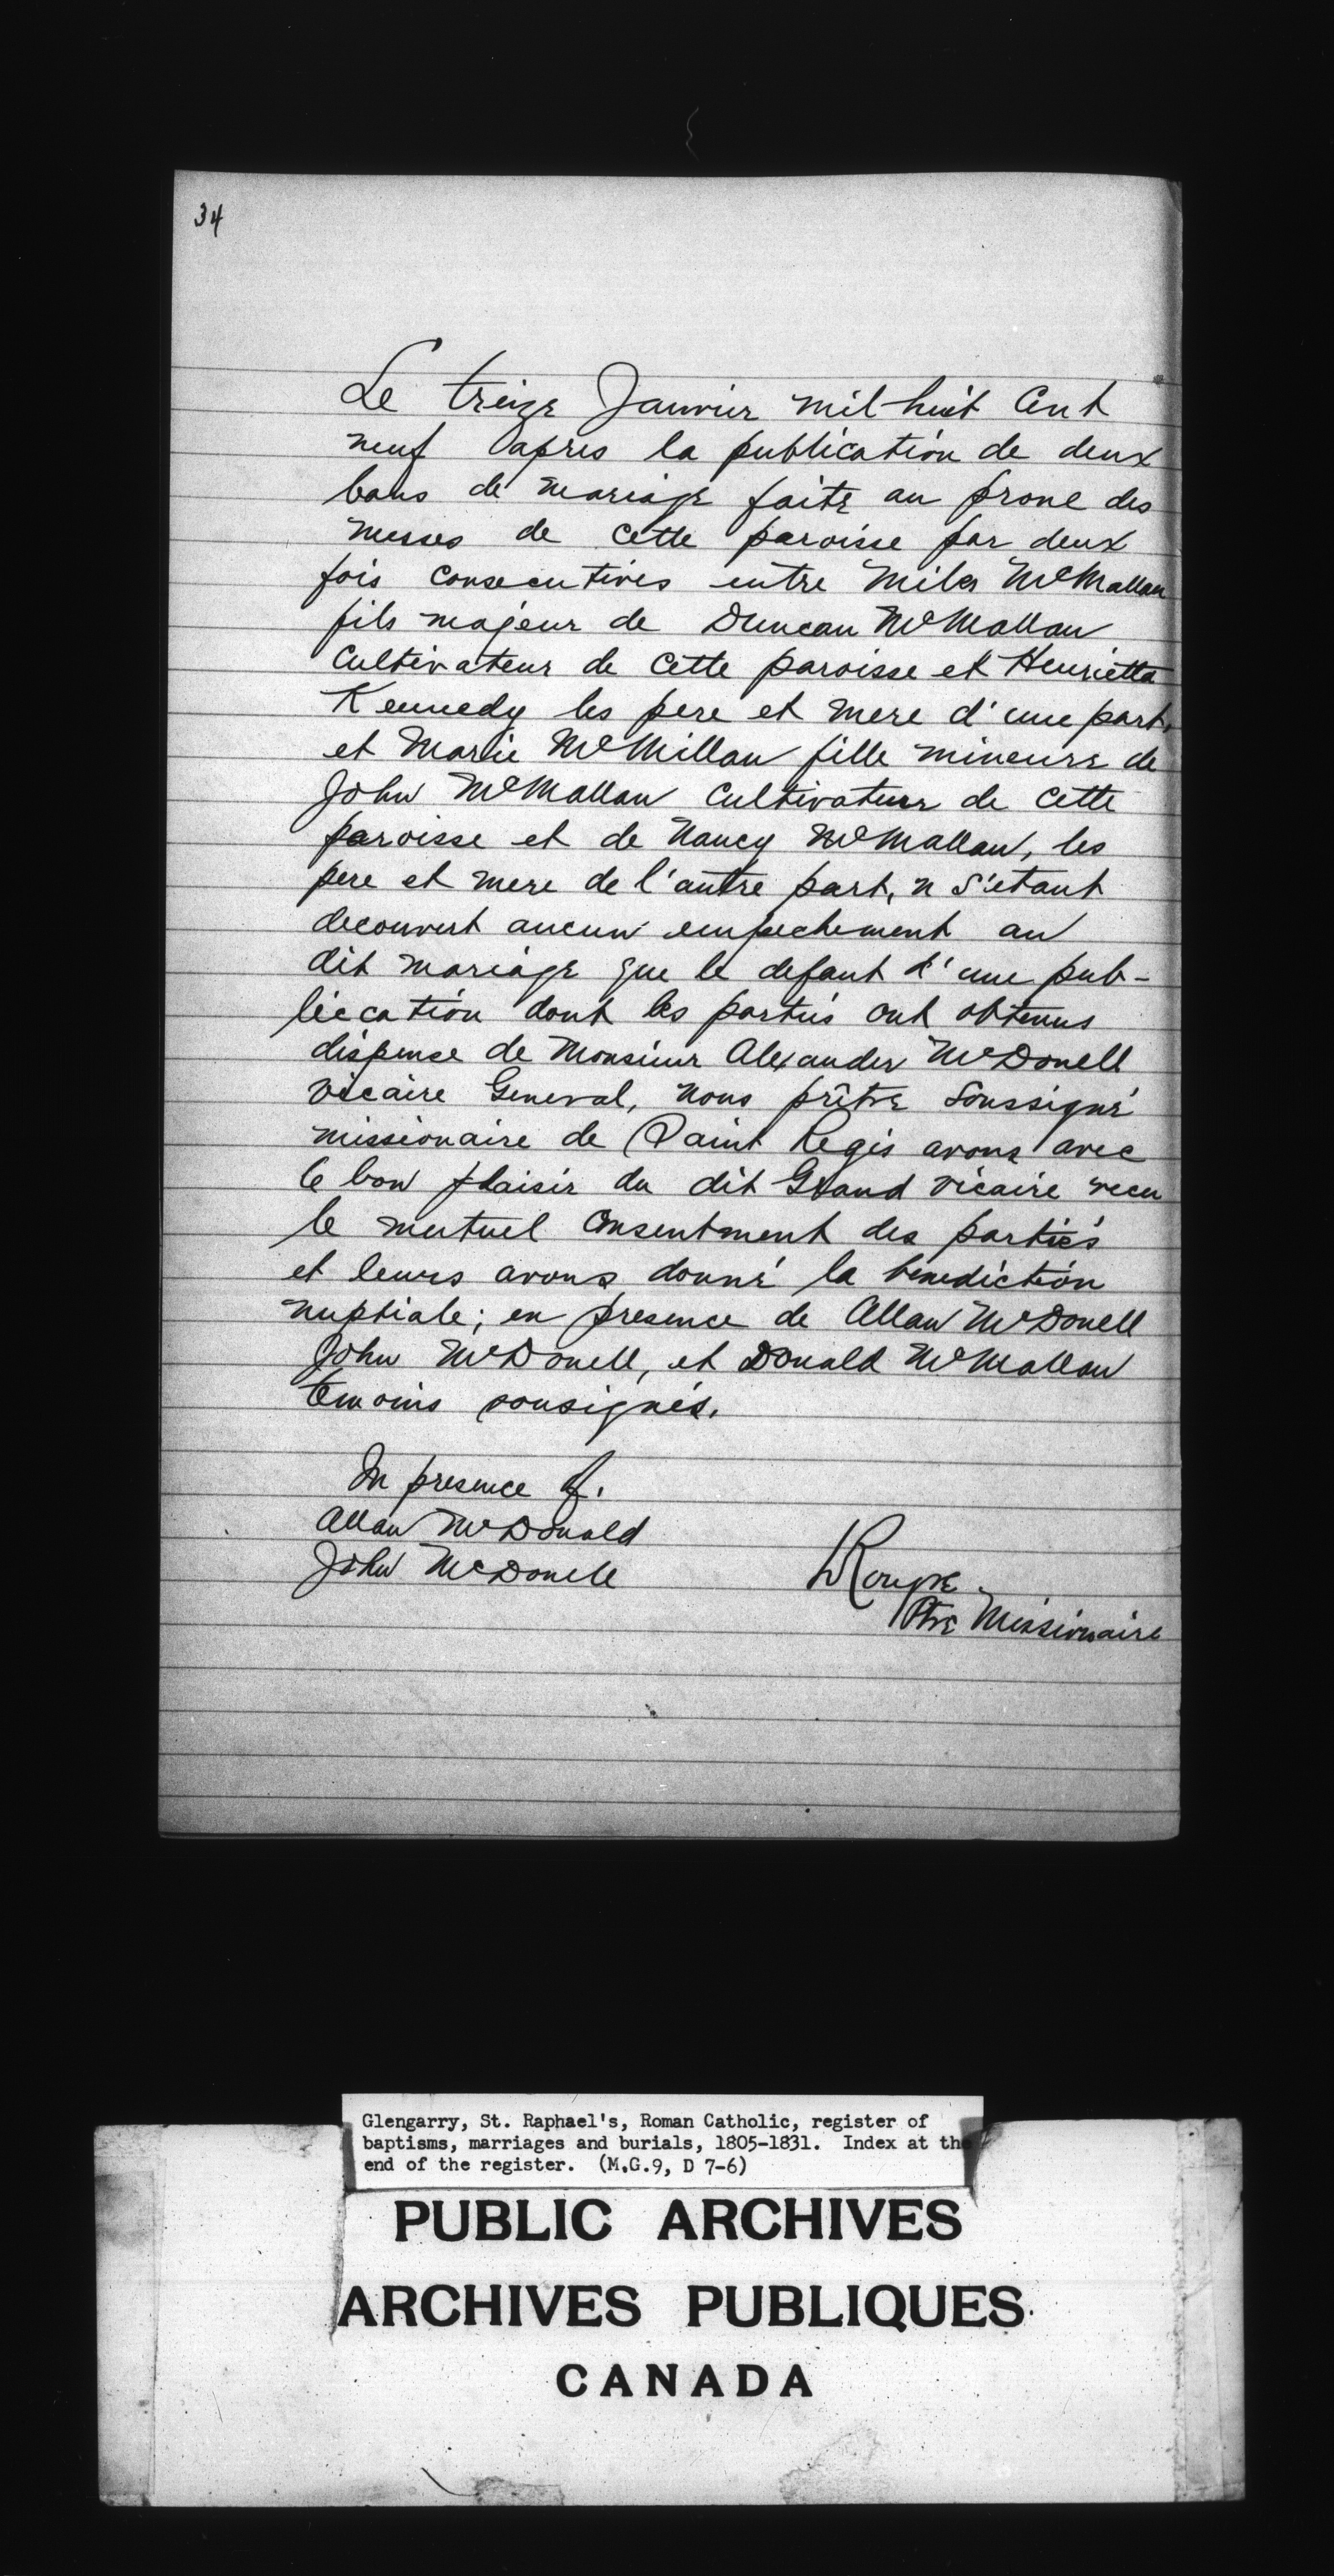 34
Le treize Janvier mil huit Cent
neuf Dapres la publication de deux
bans de mariage faite au prone des
messes de cette paroisse par deux
fois consecutives entre Miles McMallan
fils majeur de Duncan McMallan
Cultivateur de cette paroisse et Henrietta
Kennedy les pere et mere d'une part,
et Marie McMillan fille mineure de
John McMallan Cultivateur de cette
paroisse et de Nancy McMallan, les
pere et mere de l'autre part, n s'etant
decouvert aucun empechement au
dit mariage que le defaut d'une pub-
liecation dont les parties ont obtenus
dispense de Monsieur Alexander McDonell
Vicaire General, nous prêtre Soussigné
missionaire de Saint Regis avons avec
le bon plaisir du dit Grand Vicaire recu
le mutuel Consentment des partiés
et leurs avons donné la benediction
nuptiale; en presence de Allan McDonell
John McDonell, et Donald McMallan
temoins sousignés.
In presence of.
Allan McDonald
John McDonell
Roupe
Ptre Missionaire
Glengarry, St. Raphael's, Roman Catholic, register of
baptisms, marriages and burials, 1805-1831. Index at the
end of the register. (M.G.9, D 7-6)
PUBLIC ARCHIVES
ARCHIVES PUBLIQUES
CANADA